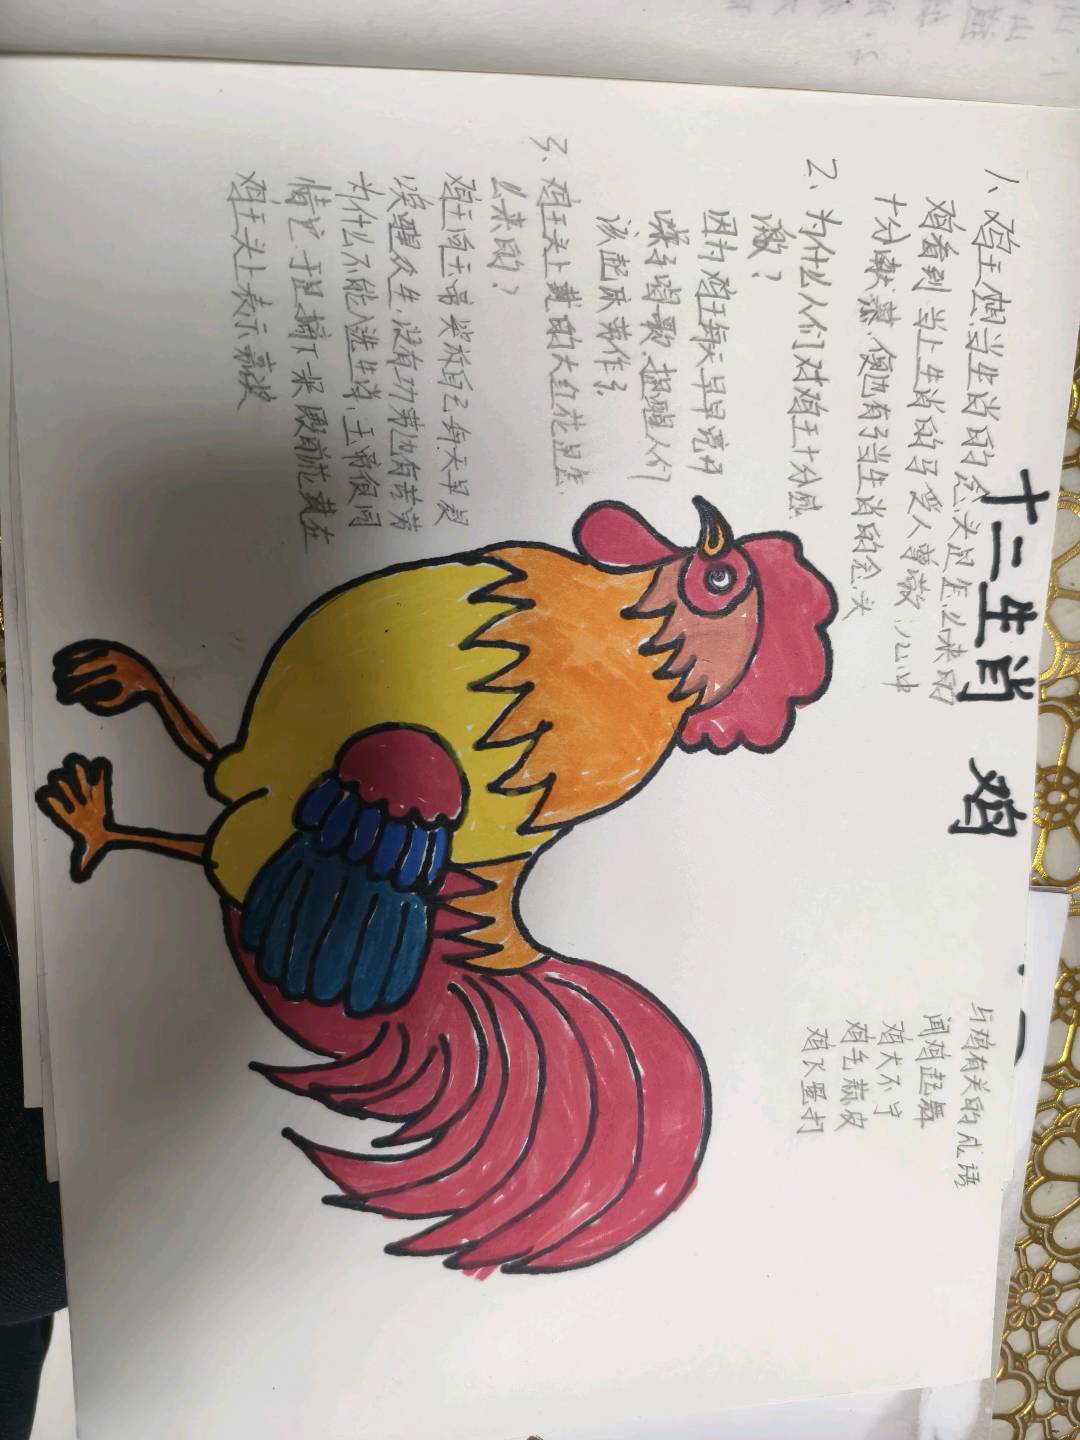 十二生肖 鸡
1、鸡王想当生肖的念头是怎么来的
鸡看到当上生肖的马受人尊敬,心中
十分羡慕,便也有了当生肖的念头
2、为什么人们对鸡王十分感
激?
因为鸡王每天早早亮开
嗓子唱歌,提醒人们
该起床劳作了。
3、鸡王头上戴的大红花是怎
么来的?
鸡王向玉帝哭诉自己每天早晨
唤醒众生,没有功劳也有苦劳
为什么不能入选生肖,玉帝很同
情它,于是摘下一朵殿前花戴在
鸡王头上表示嘉奖
与鸡有关的成语
闻鸡起舞
鸡犬不宁
鸡毛蒜皮
鸡飞蛋打